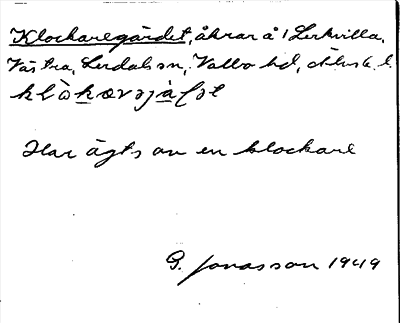 Klockaregärdet, åkrar å 1 Lerkvilla,
Västra, Lerdals sn, Valbo hd, Älvsb. l.
Har ägts av en klockare
G. Jonasson 1949